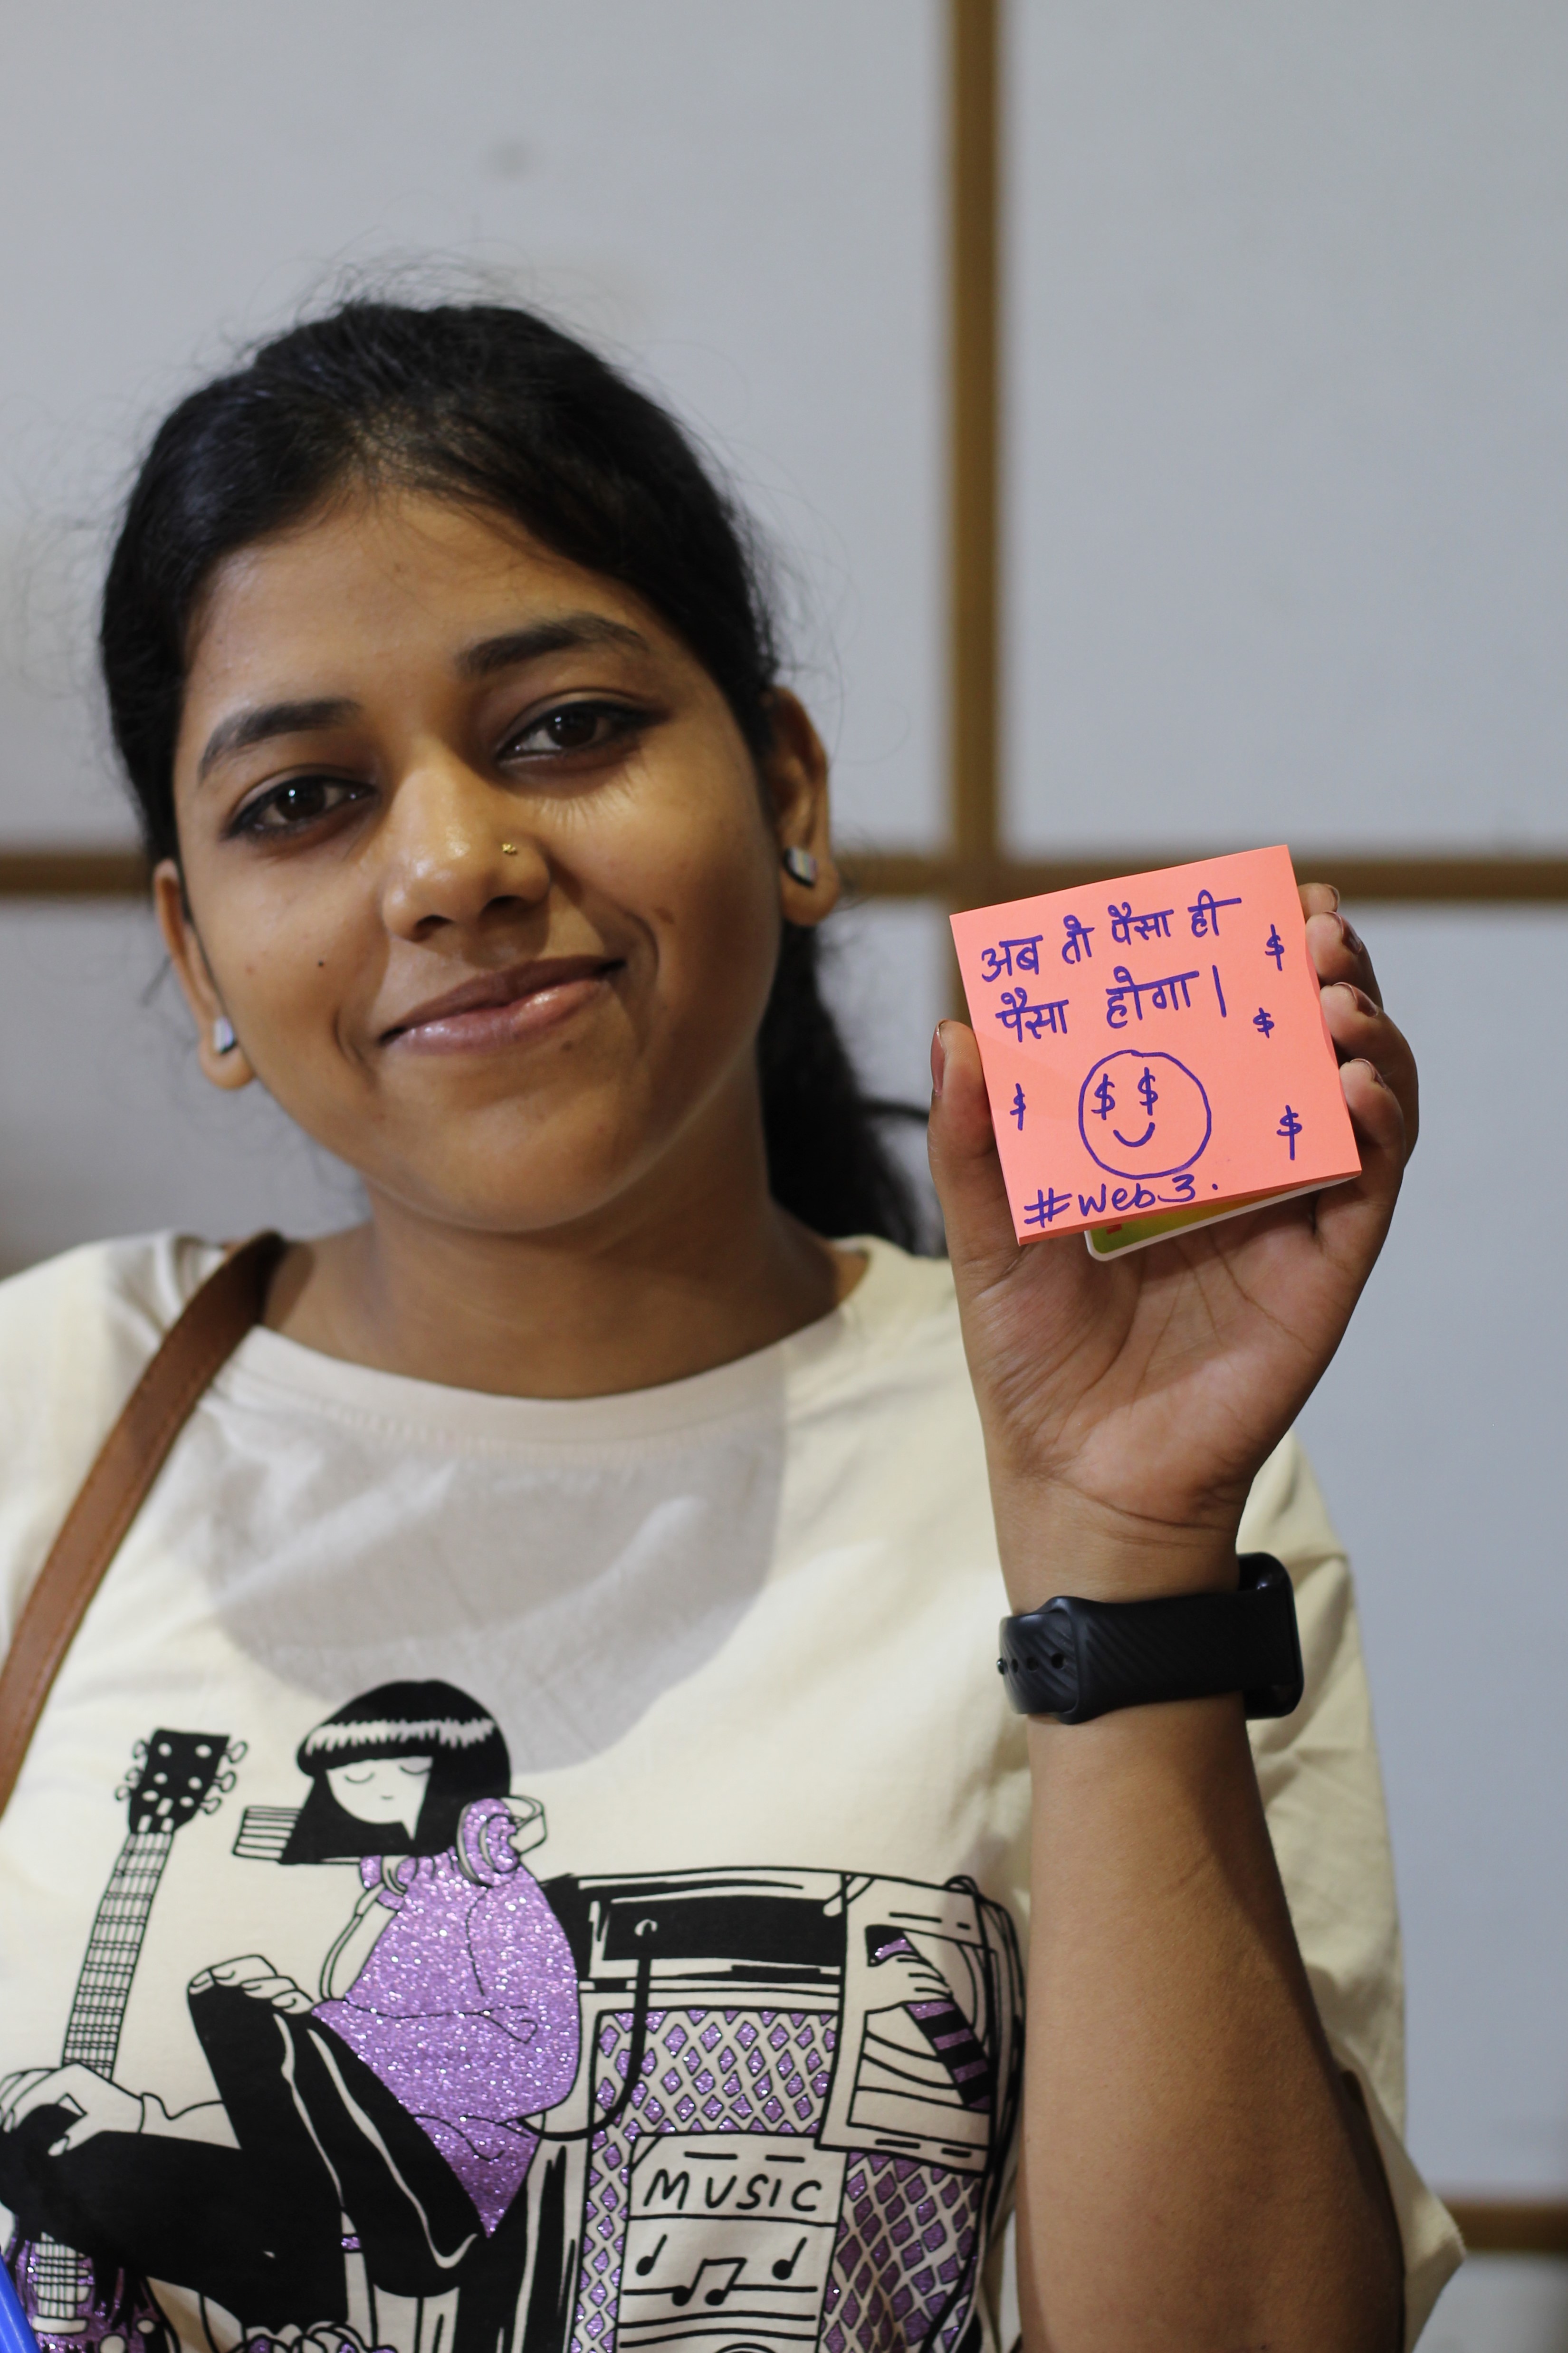 अब तो पैसा ही $
पैसा होगा। $
$ $ $ $
#Web3.
MUSIC